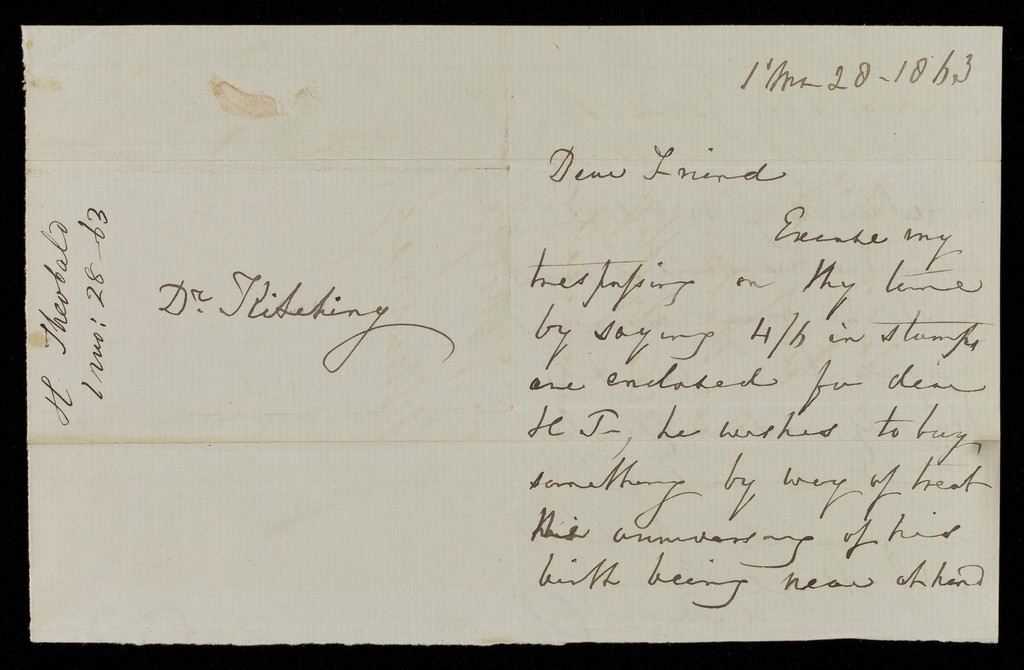 H. Theobald
1 mo: 28-63
Dr. Kitching
1st Mo 28-1863
Dear Friend
Excuse my
trespassing on thy time
by saying 4/6 in stamps
are enclosed for dear
H T-, he wishes to buy
something by way of treat
this anniversary of his
birth being near at hand